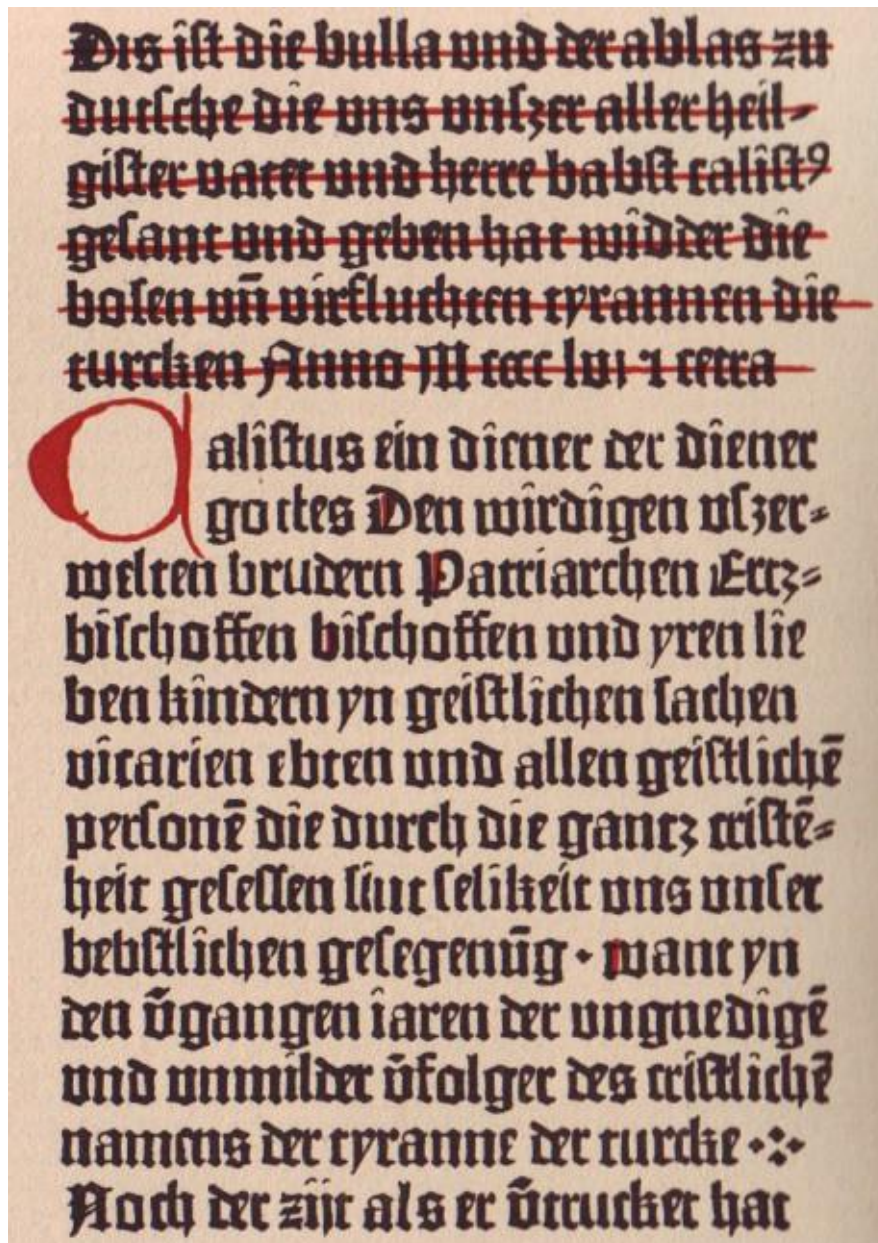 Dis ist die bulla und der ablas zu
dutsche die uns unszer aller heil-
gister vater und herre babst calistꝰ
gesant und geben hat widder die
bosen uñ virfluchten tyrannen die
turcken Anno M cccc lvi ⁊ cetra
Calistus ein diener der diener
gottes Den wirdigen uszer-
welten brudern Patriarchen Ertz-
bischoffen bischoffen und yren lie
ben kindern yn geistlichen sachen
vicarien ebten und allen geistlichē
personē die durch die gantz cristē-
heit gesessen sint selikeit uns unser
bebstlichen gesegenūg · want yn
den v̄gangen iaren der ungnedigē
und unmilder v̄folger des cristlichē
namens der tyranne der turcke ·:·
Noch der zijt als er v̄trucket hat